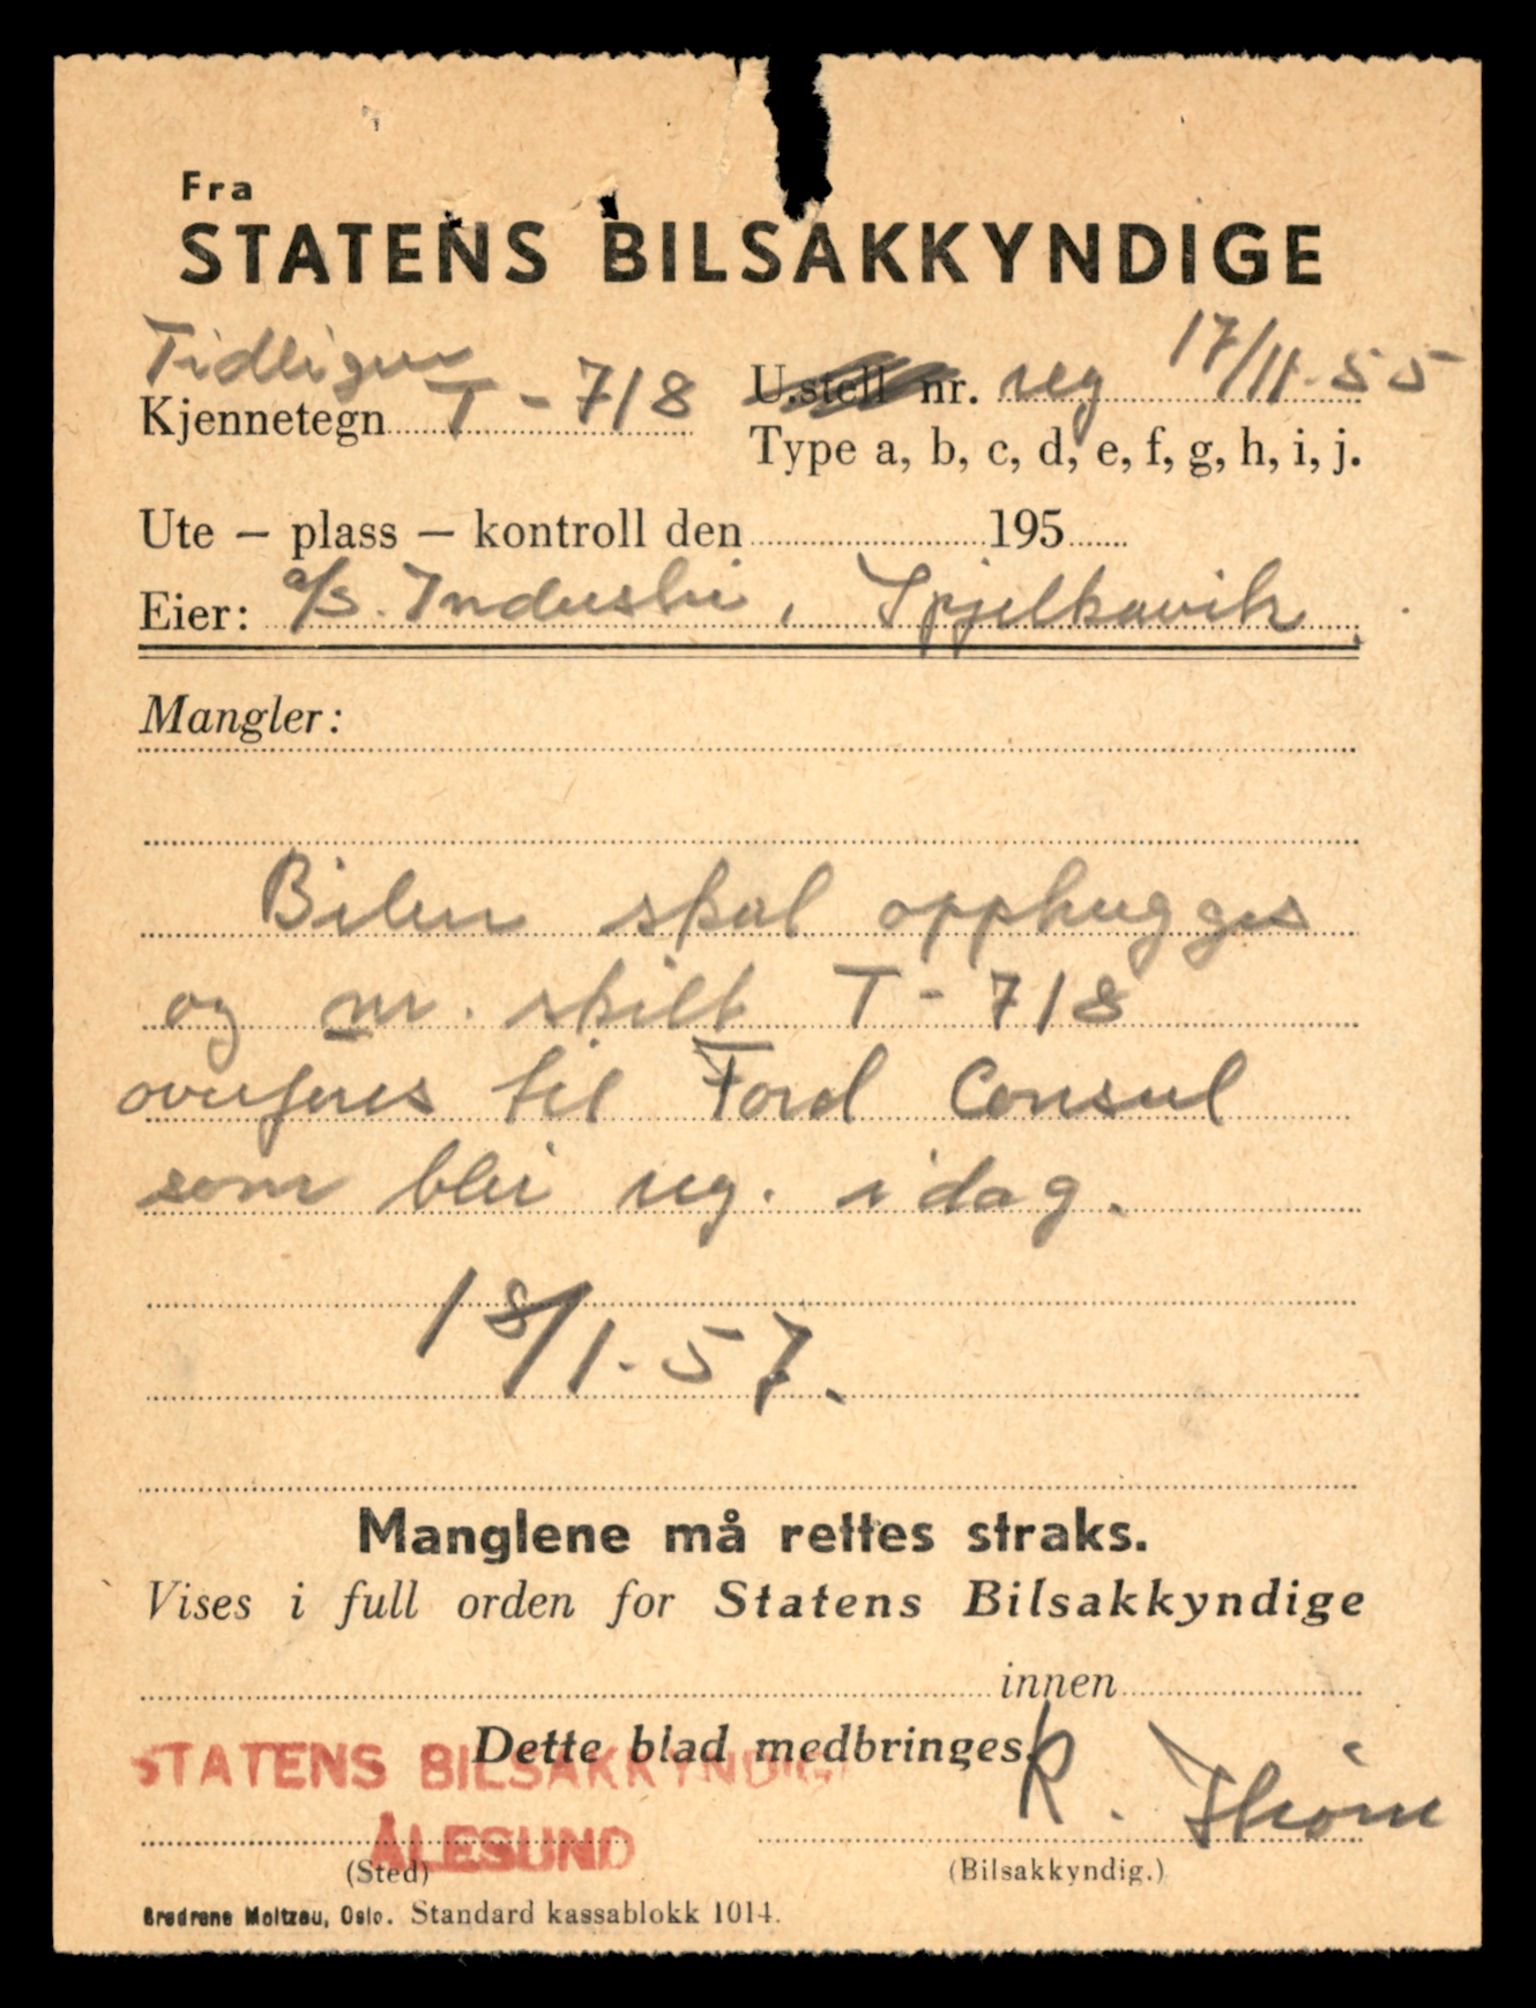 Fra
STATENS BILSAKKYNDIGE
Tidligere
Kjennetegn T - 718 U.stell nr. reg 17/11-55
Type a, b, c, d, e, f, g, h, i, j.
Ute — plass — kontroll den 195
Eier: a/s. Industri, Spjelkavik
Mangler:
Bilen skal opphugges
og nr. skilt T - 718
overføres til Ford Consul
som blir reg. idag.
18/1-57.
Manglene må rettes straks.
Vises i full orden for Statens Bilsakkyndige
innen
Dette blad medbringes.
STATENS BILSAKKYNDIG
ÅLESUND
K.
(Sted) (Bilsakkyndig.)
Brødrene Moltzau, Oslo. Standard kassablokk 1014.